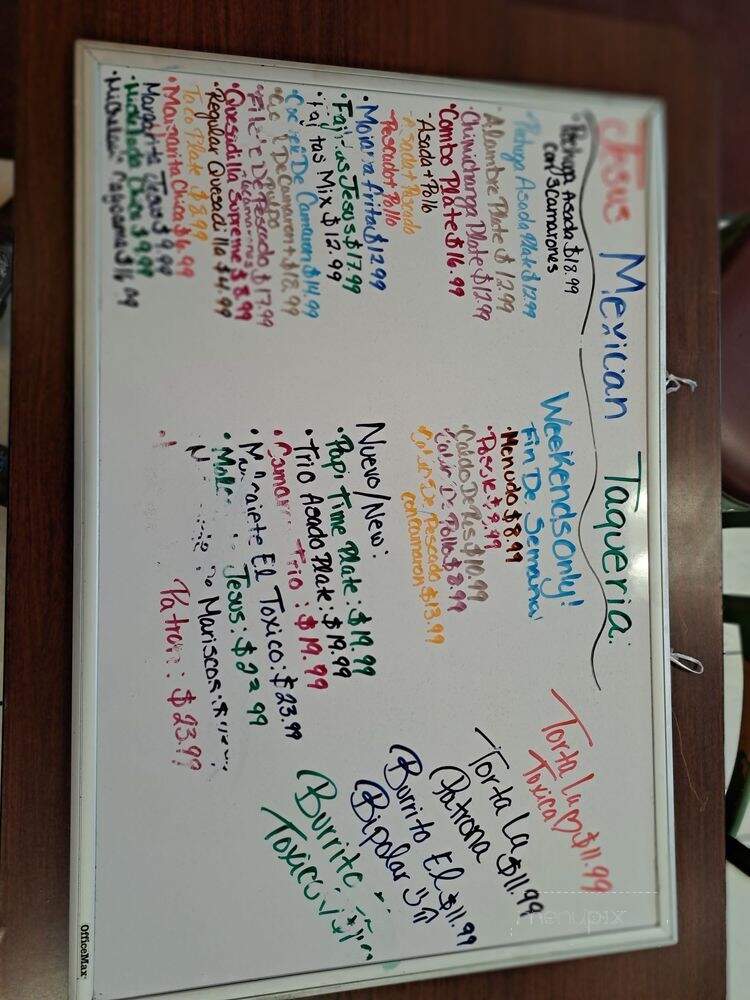 Jesus Mexican Taqueria.
• Pechuga Asada $18.99
con 3 camarones
• Pechuga Asada Plate $12.99
• Alambre Plate $12.99
• Chimichanga Plate $12.99
• Combo Plate $16.99
Asada + Pollo
Asada + Pescado
Pescado + Pollo
• Mojarra frita $12.99
• Fajitas Jesus $17.99
• Fajitas Mix $12.99
De Camaron $14.99
De Camaron + $18.99
Pulpo
De Pescado $17.99
• Quesidilla Supreme $8.99
Regular Quesadilla $4.99
Taco Plate $8.99
• Margarita Chica $6.99
Margarita Jesus $9.99
$9.99
$16.99
Weekends Only!
Fin De Semana!
• Menudo $8.99
• Posole $9.99
• Caldo De Res $10.99
• De Pollo $8.99
• De Pescado $13.99
con camaron
Nuevo/New:
• Papi Time Plate: $19.99
• Trio Asado Plate: $19.99
Trio: $19.99
El Toxico: $23.99
Jesus: $22.99
Mariscos:
Patron: $23.99
Torta La ♡ $11.99
Toxica ♡
Torta La $11.99
Patrona
Burrito El $11.99
Bipolar
Burrito
Toxico
OfficeMax
menupix